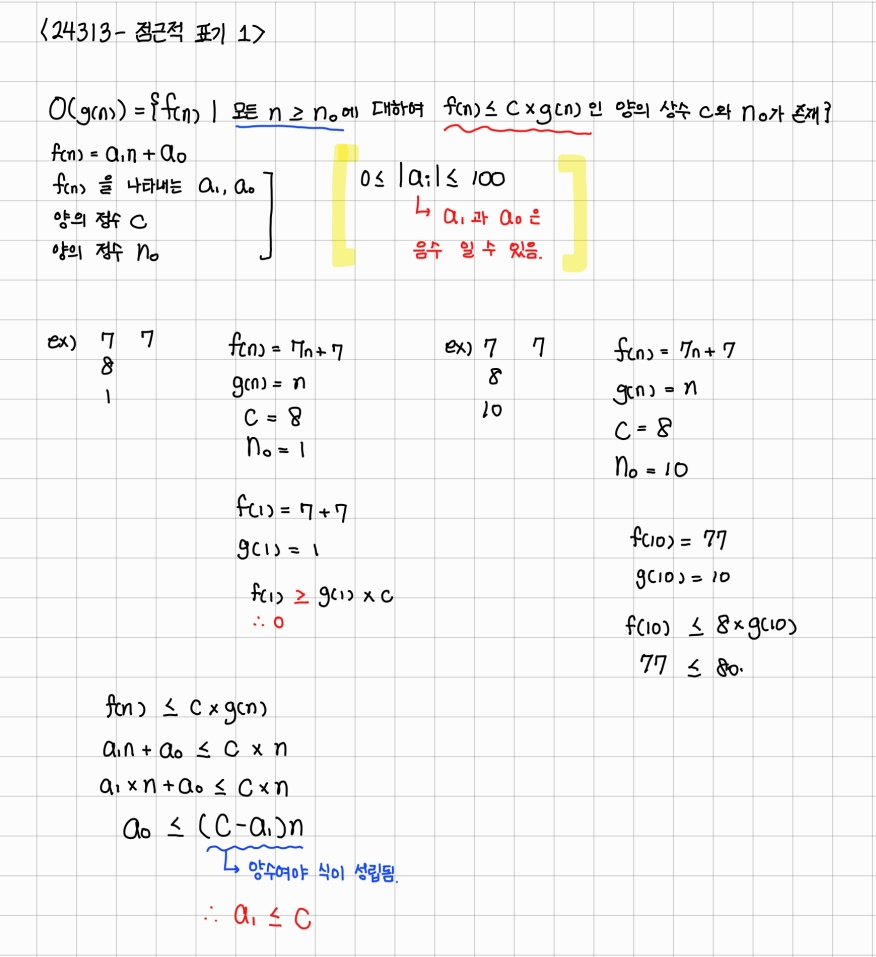 <24313 - 점근적 표기 1>
O(g(n)) = {f(n) | 모든 n ≥ n₀에 대하여 f(n) ≤ c × g(n)인 양의 상수 c와 n₀가 존재}
f(n) = a₁n + a₀
f(n)을 나타내는 a₁, a₀
양의 정수 c
양의 정수 n₀
0 ≤ |aᵢ| ≤ 100
↳ a₁과 a₀은
음수 일 수 있음.
ex) 7 7
8
1
f(n) = 7n + 7
g(n) = n
C = 8
n₀ = 1
f(1) = 7 + 7
g(1) = 1
f(1) ≥ g(1) × C
∴ 0
ex) 7 7
8
10
f(n) = 7n + 7
g(n) = n
C = 8
n₀ = 10
f(10) = 77
g(10) = 10
f(10) ≤ 8 × g(10)
77 ≤ 80.
f(n) ≤ C × g(n)
a₁n + a₀ ≤ C × n
a₁ × n + a₀ ≤ C × n
a₀ ≤ (C - a₁)n
↳ 양수여야 식이 성립됨.
∴ a₁ ≤ C